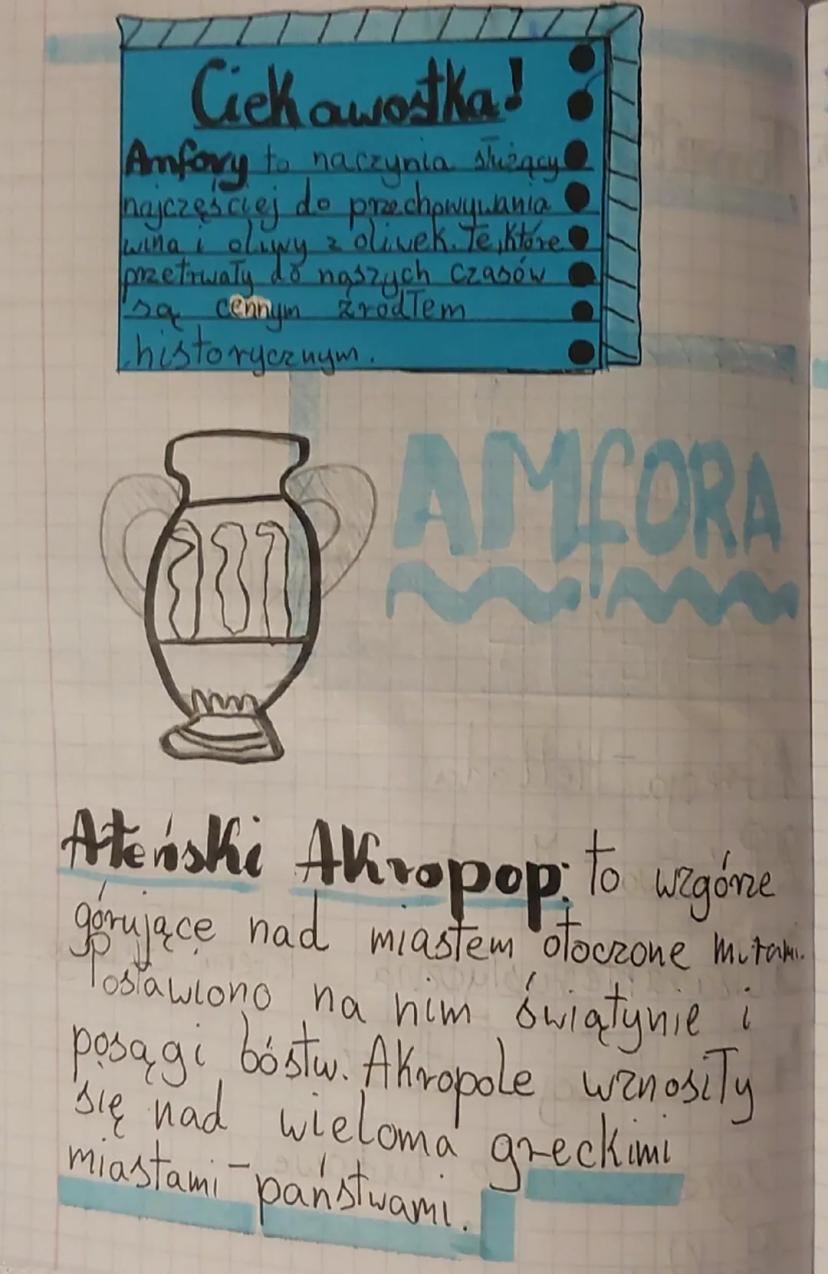 Ciekawostka!
Amfory to naczynia służący
najczęściej do przechowywania
wina i oliwy z oliwek. Te, które
przetrwały do naszych czasów
są cennym źródłem
historycznym.
AMfORA
Ateński Akropop: to wzgórze
górujące nad miastem otoczone murami.
Postawiono na nim świątynie i
posągi bóstw. Akropole wznosiły
się nad wieloma greckimi
miastami-państwami.